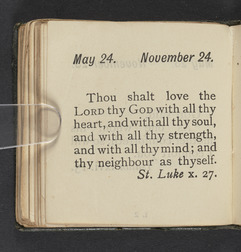 May 24. November 24.
Thou shalt love the
LORD thy GOD with all thy
heart, and with all thy soul,
and with all thy strength,
and with all thy mind; and
thy neighbour as thyself.
St. Luke x. 27.